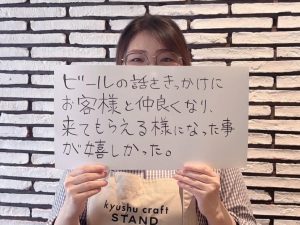 ビールの話をきっかけに
お客様と仲良くなり、
来てもらえる様になった事
が嬉しかった。
kyushu craft
STAND